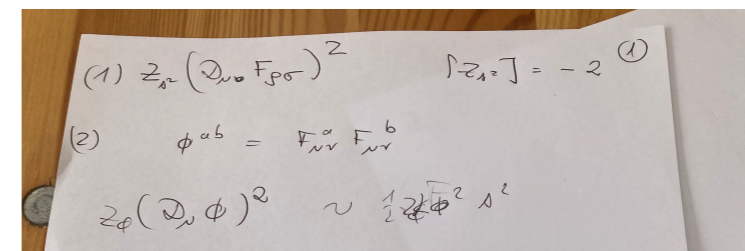 (1) Z_{s²} (D_μ F_{ρσ})² [Z_{s²}] = -2 ①
(2) ϕ^{ab} = F_{μν}^a F_{μν}^b
Z_ϕ (D_μ ϕ)² ~ 1/2 ϕ² s²